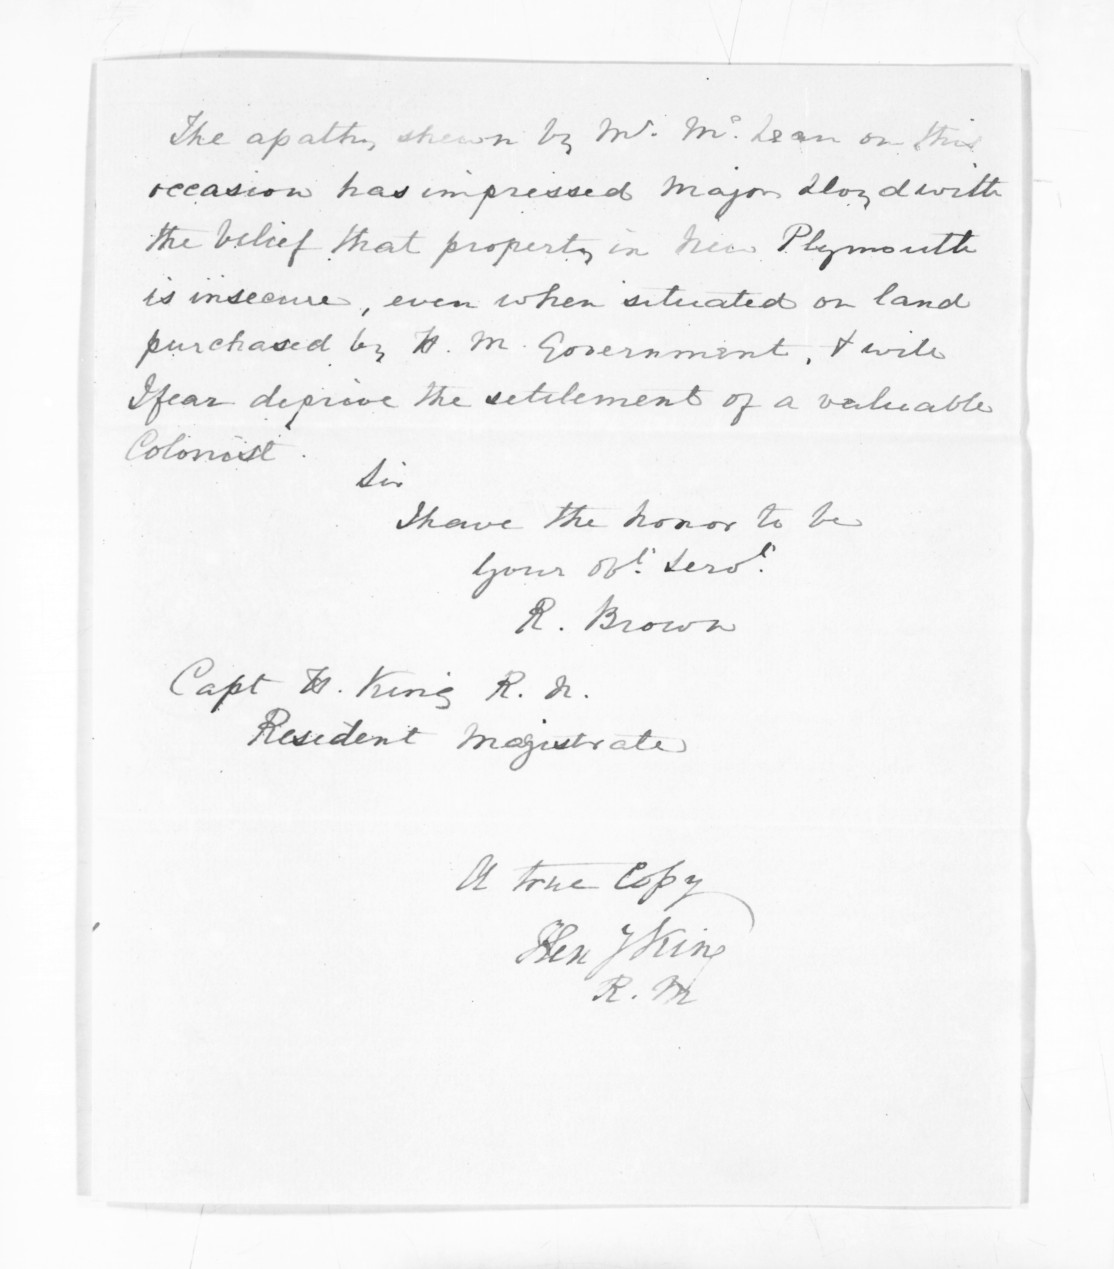 The apathy shewn by Mr. Mc. Lean on this
occasion has impressed Major Lloyd with
the belief that property in New Plymouth
is insecure, even when situated on land
purchased by H. M. Government, & will
I fear deprive the settlement of a valuable
Colonist.
Sir
I have the honor to be
Your Obt. Servt.
R. Brown
Capt H. King R. N.
Resident Magistrate
A true Copy
Hen King
R. M